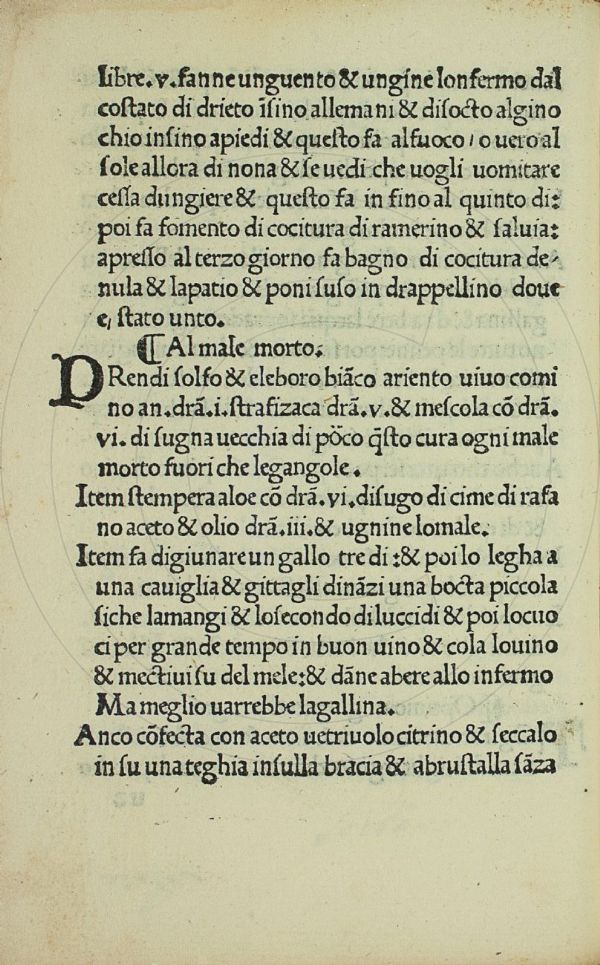 libre.v.fanne unguento & ungine lonfermo dal
coſtato di drieto iſino allemani & diſocto algino
chio inſino apiedi & queſto fa alfuoco / o uero al
ſole allora di nona & ſe uedi che uogli uomitare
ceſſa dungiere & queſto fa in fino al quinto di:
poi fa fomento di cocitura di ramerino & ſaluia:
apreſſo al terzo giorno fa bagno di cocitura de-
nula & lapatio & poni ſuſo in drappellino doue
e, ſtato unto.
¶ Al male morto.
PRendi ſolfo & eleboro biãco ariento uiuo comi
no an. drã.i.ſtrafizaca drã.v.& meſcola cõ drã.
vi. di ſugna uecchia di põco q̃ſto cura ogni male
morto fuori che legangole.
Item ſtempera aloe cõ drã.vi.diſugo di cime di rafa
no aceto & olio drã.iii.& ugnine lomale.
Item fa digiunare un gallo tre di :& poi lo legha a
una cauiglia & gittagli dinãzi una bocta piccola
ſiche lamangi & loſecondo di luccidi & poi locuo
ci per grande tempo in buon uino & cola louino
& mectiui ſu del mele:& dãne abere allo infermo
Ma meglio uarrebbe lagallina.
Anco cõfecta con aceto uetriuolo citrino & ſeccalo
in ſu una teghia inſulla bracia & abruſtalla ſãza